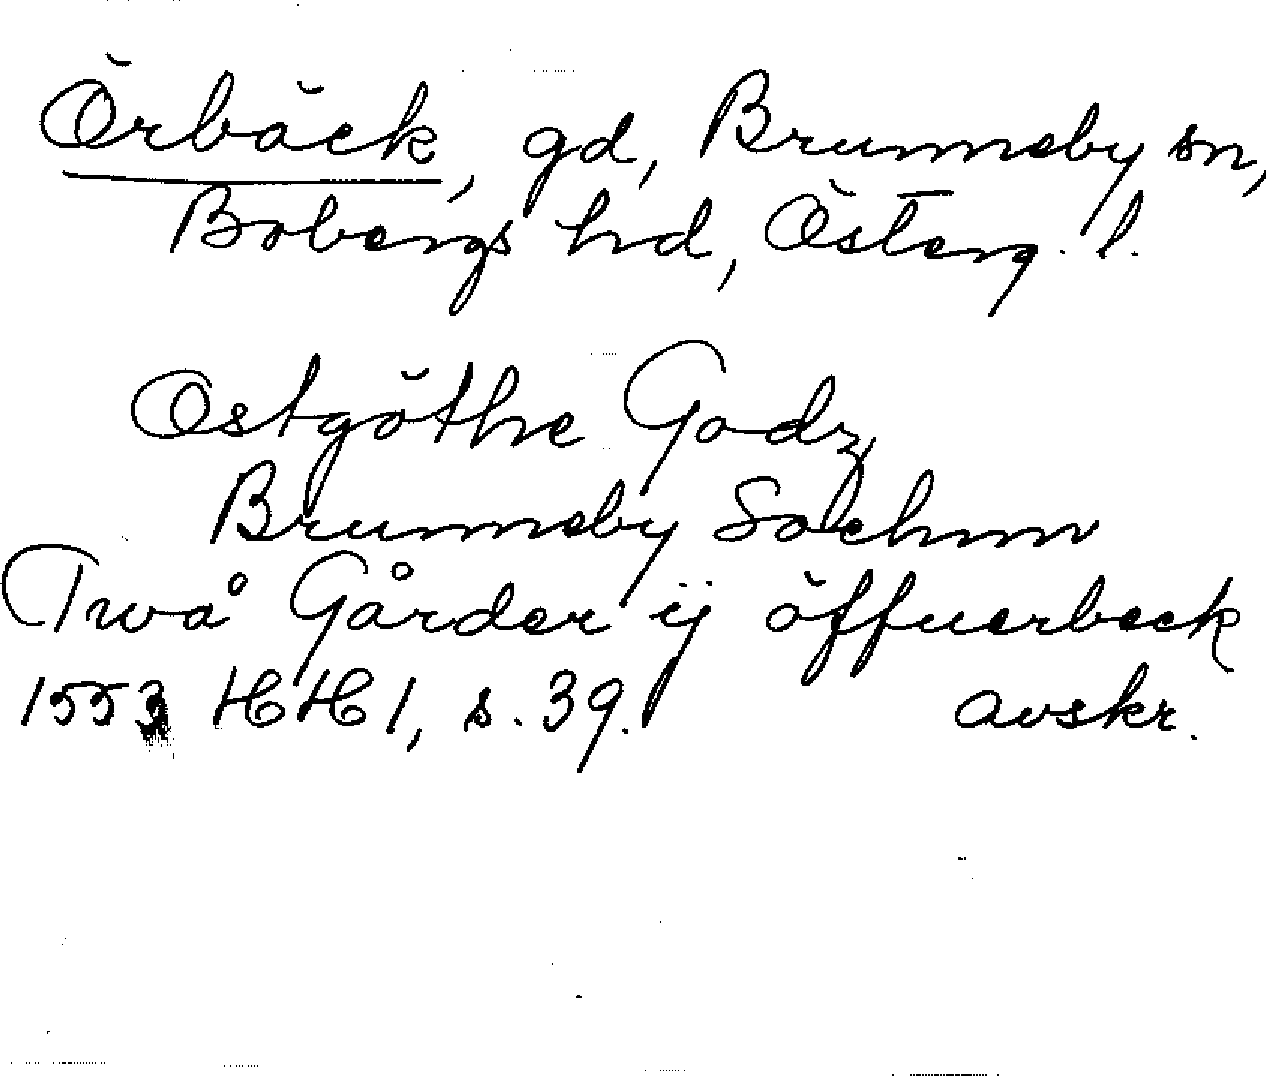 Örbäck, gd, Brunneby sn,
Bobergs hd, Österg. l.
Ostgöthe Godz
Brunneby Sochnn
Twå Gårder ij öffuerbeck
1553 HH 1, s. 39. avskr.